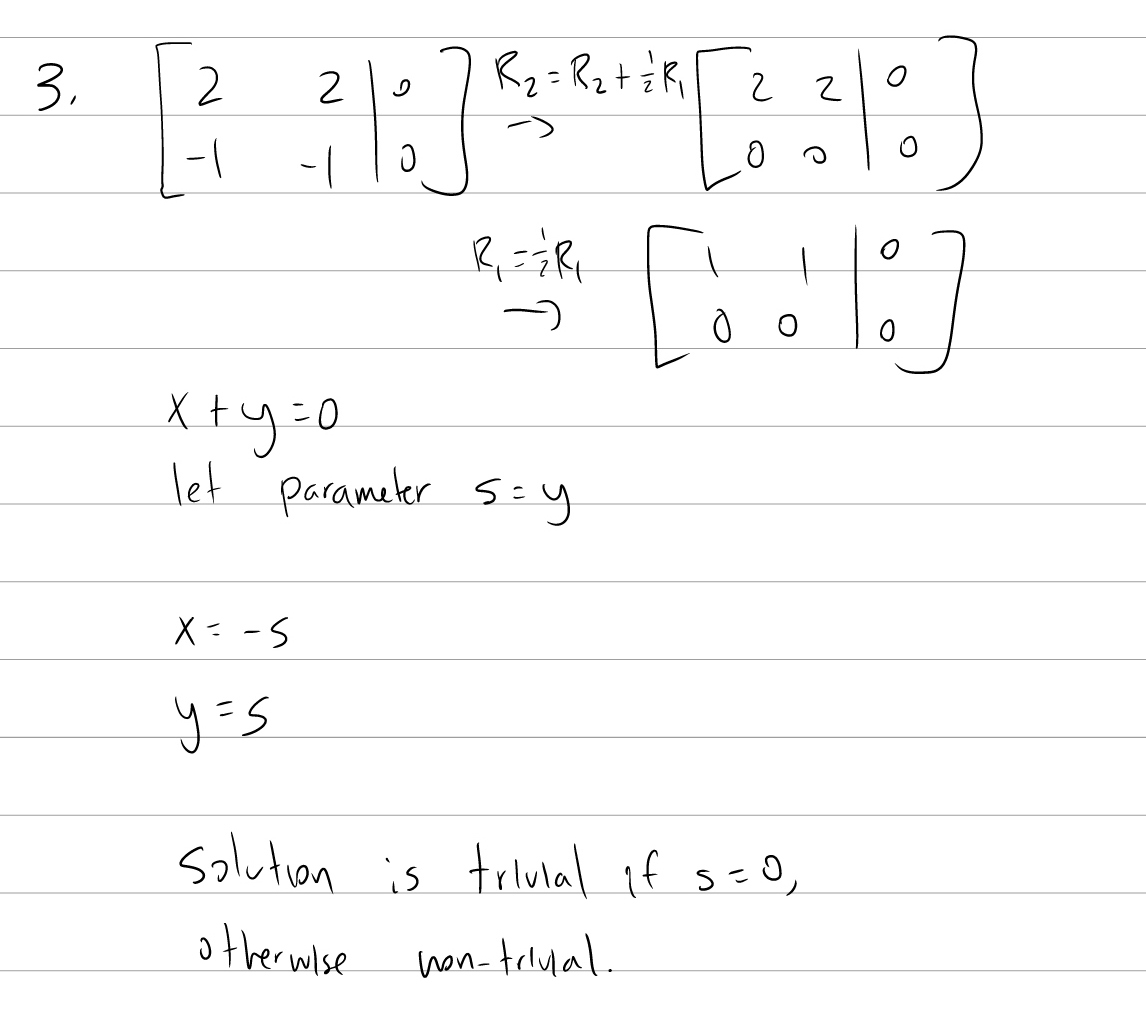 3. [2 2 | 0] R₂=R₂+½R₁ [2 2 | 0]
[-1 -1 | 0] → [0 0 | 0]
R₁=½R₁ [1 1 | 0]
→ [0 0 | 0]
x+y=0
let parameter s=y
x=-s
y=s
Solution is trivial if s=0,
otherwise non-trivial.